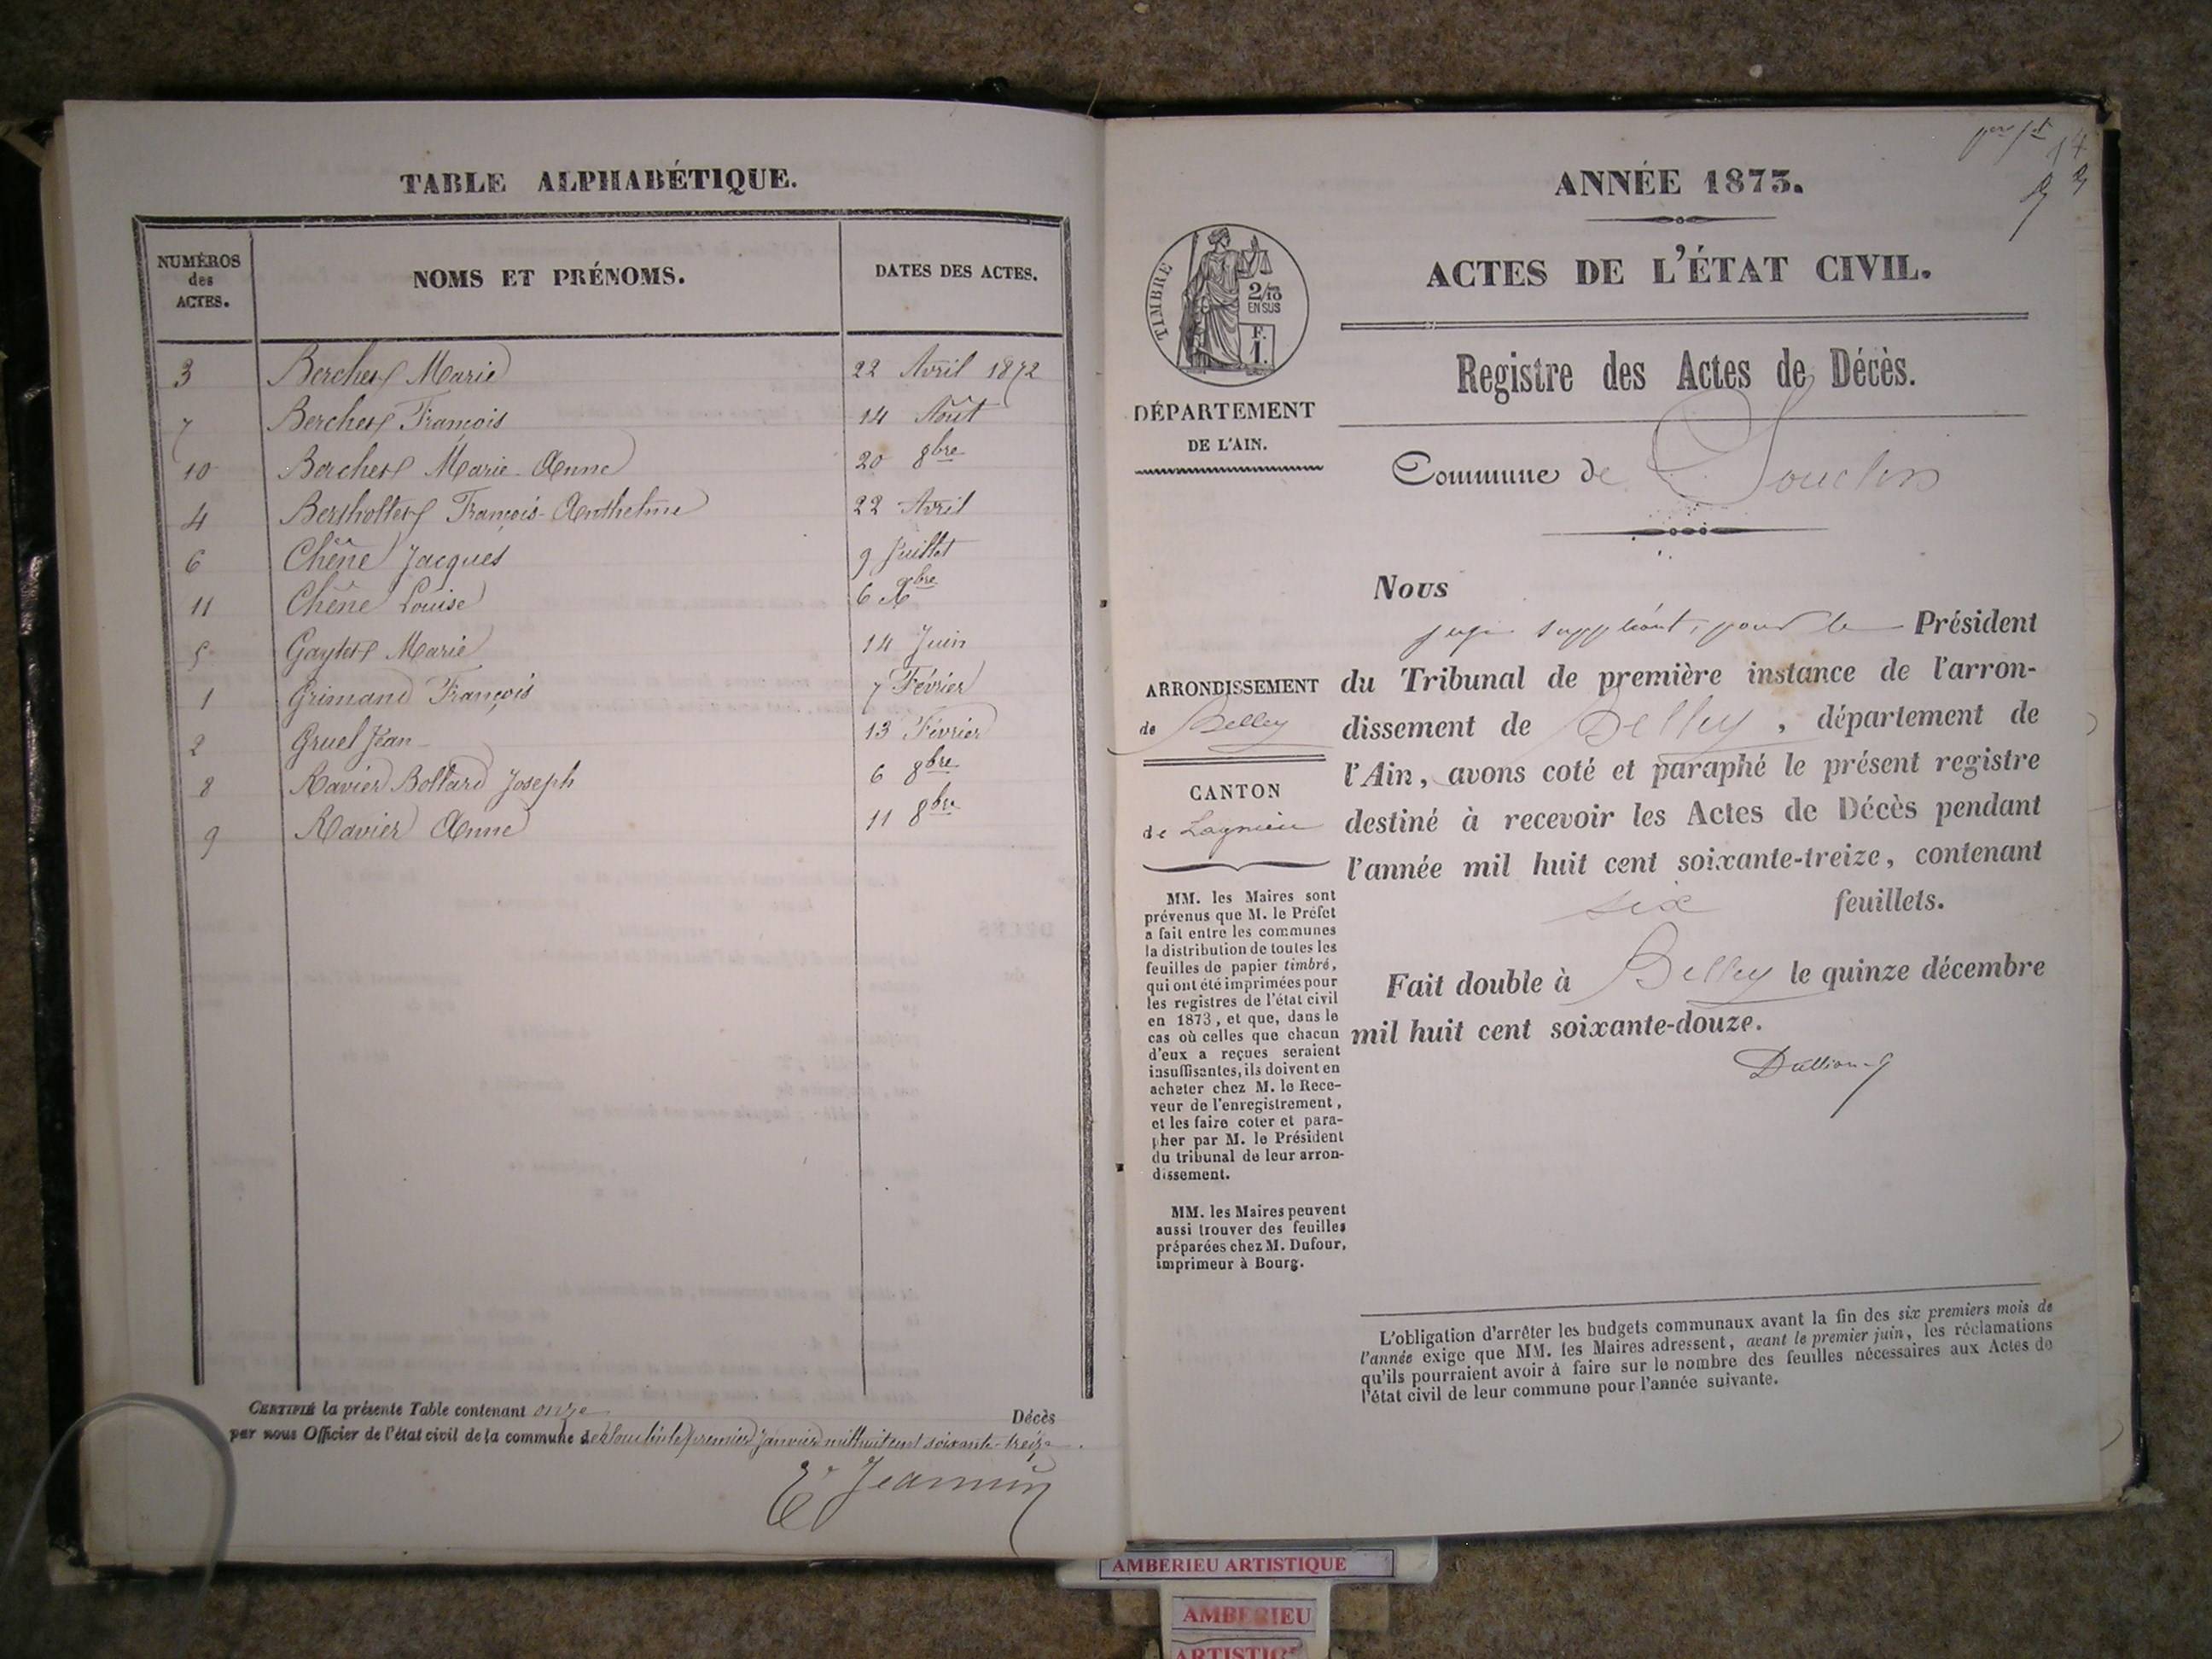 TABLE ALPHABÉTIQUE.
NUMÉROS des ACTES. NOMS ET PRÉNOMS. DATES DES ACTES.
3 Bercher Marie 22 Avril 1872
7 Bercher François 14 Août
10 Bercher Marie-Anne 20 8bre
4 François-Anthelme 22 Avril
6 Chêne Jacques 9 Juillet
11 Chêne Louise 6 Xbre
5 Marie 14 Juin
1 Grimand François 7 Février
2 Gruel Jean 13 Février
8 Ravier Bollard Joseph 6 8bre
9 Ravier Anne 11 8bre
CERTIFIÉ la présente Table contenant onze Décès
par nous Officier de l'état civil de la commune de Souclin le premier Janvier mil huit cent soixante-treize.
Jeannin
ANNÉE 1873.
ACTES DE L'ÉTAT CIVIL.
TIMBRE
2/10
EN SUS
F.
1.
Registre des Actes de Décès.
DÉPARTEMENT
DE L'AIN.
Commune de Souclin
Nous
juge suppléant, pour le Président
du Tribunal de première instance de l'arron-
dissement de Belley, département de
l'Ain, avons coté et paraphé le présent registre
destiné à recevoir les Actes de Décès pendant
l'année mil huit cent soixante-treize, contenant
six feuillets.
Fait double à Belley le quinze décembre
mil huit cent soixante-douze.
ARRONDISSEMENT
de Belley
CANTON
de Lagnieu
MM. les Maires sont
prévenus que M. le Préfet
a fait entre les communes
la distribution de toutes les
feuilles de papier timbré,
qui ont été imprimées pour
les registres de l'état civil
en 1873, et que, dans le
cas où celles que chacun
d'eux a reçues seraient
insuffisantes, ils doivent en
acheter chez M. le Rece-
veur de l'enregistrement,
et les faire coter et para-
pher par M. le Président
du tribunal de leur arron-
dissement.
MM. les Maires peuvent
aussi trouver des feuilles
préparées chez M. Dufour,
imprimeur à Bourg.
L'obligation d'arrêter les budgets communaux avant la fin des six premiers mois de
l'année exige que MM. les Maires adressent, avant le premier juin, les réclamations
qu'ils pourraient avoir à faire sur le nombre des feuilles nécessaires aux Actes de
l'état civil de leur commune pour l'année suivante.
AMBERIEU ARTISTIQUE
AMBERIEU
ARTISTIQUE